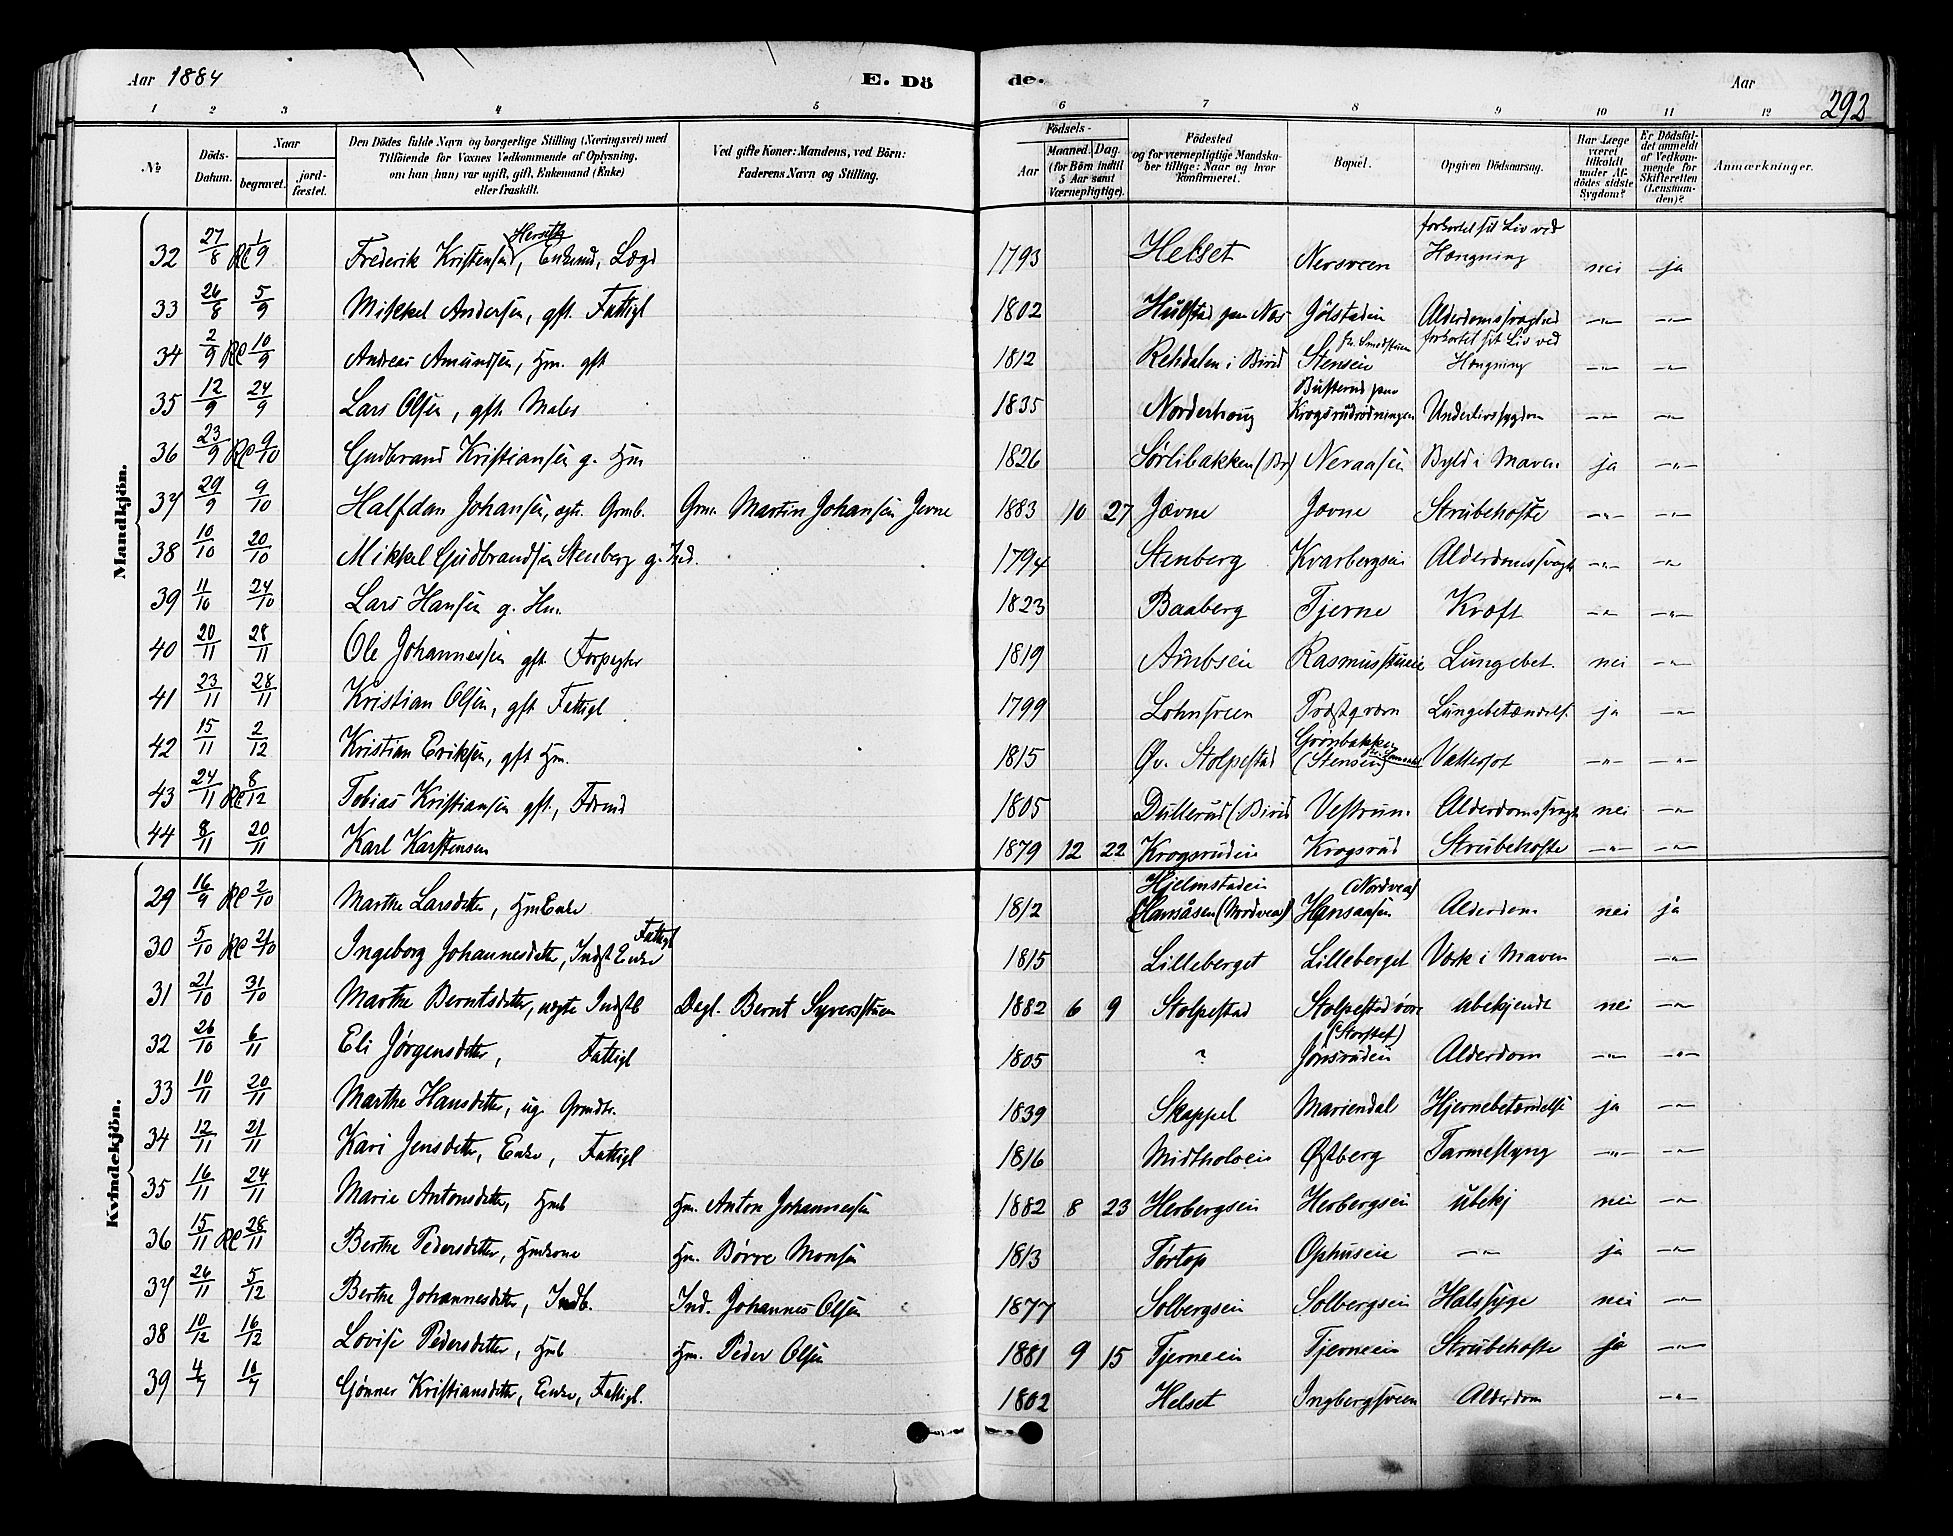 Aar 1884 E. Dö de. Aar 292
1 2 3 4 5 6 7 8 9 10 11 12
No Döds-Datum. Naar begravet. jord-fæstet. Den Dödes fulde Navn og borgerlige Stilling (Næringsvei) med Tilföiende for Voxnes Vedkommende af Oplysning, om han (hun) var ugift, gift, Enkemand (Enke) eller fraskilt. Ved gifte Koner: Mandens, ved Börn: Faderens Navn og Stilling. Födsels- Aar Maaned. Dag. (for Börn indtil 5 Aar samt Værnepligtige). Födested og for værnepligtige Mandska-ber tillige: Naar og hvor konfirmeret. Bopæl. Opgiven Dödsaarsag. Har Læge været tilkaldt under Af-dödes sidste Sygdom? Er Dödsfal-det anmeldt af Vedkom-mende for Skifteretten (Lensman-den)? Anmærkninger.
Mandkjön.
32 27/8 1/9 Frederik Kristensen, Enkemd, Lægd 1793 Helset Nersveen forkortet sit Liv ved Hængning nei ja
33 26/8 5/9 Mikkel Andersen, gft. Fattigl 1802 paa Nes Jølstadein Alderdomssvaghed —"— —"—
34 2/9 10/9 Andreas Amundsen, Hm. gft 1812 Rehdalen i Birid Stensein forkortet sit Liv ved Hængning —"— —"—
35 12/9 24/9 Lars Olsen, gft. Maler 1835 Norderhoug Krogsrudrødningen Underlivssygdom —"— —"—
36 23/9 9/10 Gudbrand Kristiansen g. Hm 1826 Sørlibakken (Br) Neraasen Byld i Maven ja —"—
37 29/9 9/10 Halfdan Johansen, ægte Grmb. Grm. Martin Johansen Jevne 1883 10 27 Jævne Jævne Strubehoste —"— —"—
38 10/10 20/10 Mikkel Gudbrandsen Stenberg g. Ind. 1794 Stenberg Kvarbergsei Alderdomssvagh —"— —"—
39 11/10 24/10 Lars Hansen g. Hm. 1823 Baaberg Tjerne Kræft —"— —"—
40 20/11 28/11 Ole Johannessen gft. Forpagter 1819 Rasmusstuen Lungebet. nei —"—
41 23/11 28/11 Kristian Olsen, gft Fattigl 1799 Lohnsveen Præstqværn Lungebetændels. ja —"—
42 15/11 2/12 Kristian Eriksen, gft Hm. 1815 Øv. Stolpestad Grønbakken (Stensen) Vattersot —"— —"—
43 24/11 8/12 Tobias Kristiansen gft., Fdrmd 1805 Dullerud (Birid Vestrum Alderdomssvagh nei —"—
44 8/11 20/11 Karl Karstensen 1879 12 22 Krogsrudein Krogsrud Strubehoste —"— —"—
Kvindekjön.
29 16/9 2/10 Marthe Larsdtter, HmEnke 1812 Hjelmstadein (Hansåsen (Nordvea)) Hansaasen (Nordvea) Alderdom nei ja
30 5/10 21/10 Ingeborg Johannesdtter, IndstEnke Fattigl 1815 Lilleberget Lilleberget Værk i Maven —"—
31 21/10 31/10 Marthe Berntsdtter, ægte Indstb Dagl. Bernt Syversstuen 1882 6 9 Stolpestad Stolpestad øvre ubekjendt nei —"—
32 26/10 6/11 Eli Jørgensdtter, Fattigl 1805 ? Jonsrudein Alderdom —"— —"—
33 10/11 20/11 Marthe Hansdtter, ug. Grmdtr. 1839 Skappel Mariendal Hjernebetændelse ja —"—
34 12/11 21/11 Kari Jensdtter, Enke, Fattigl 1816 Midtholoein Østberg Tarmeslyng —"— —"—
35 16/11 24/11 Marie Antonsdtter, Hmb Hm. Anton Johannesen 1882 8 23 Herbergsein Herbergsein ubekj nei —"—
36 15/11 28/11 Berthe Pedersdtter, Hmkone Hm. Børre Monsen 1813 Tørtop Ophuseie —"— ja —"—
37 26/11 5/12 Berthe Johannesdtter, Indb. Ind. Johannes Olsen 1877 Solbergsein Solbergsein Halssyge nei —"—
38 10/12 16/12 Lovise Pedersdtter, Hmb Hm. Peder Olsen 1881 9 15 Tjerneein Tjerneein Strubehoste ja —"—
39 4/7 10/7 Gønner Kristiansdtter, Enke, Fattigl. 1802 Helset Ingbergsveen Alderdom —"—